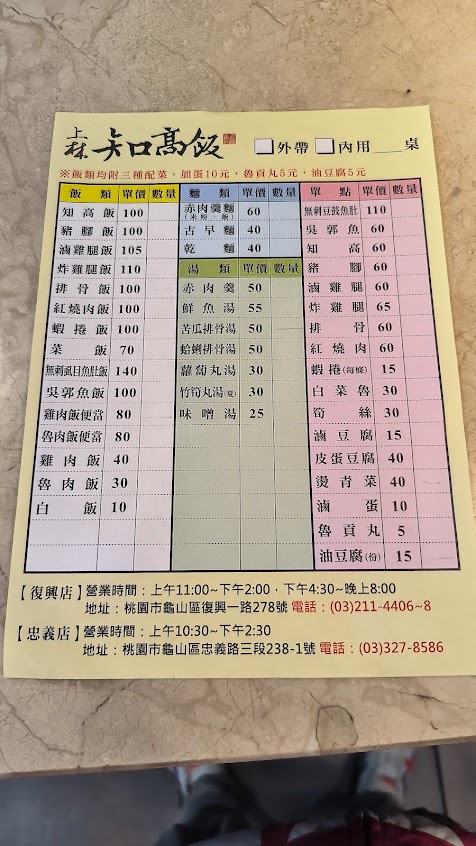 上林 知高飯 □外帶 □內用____桌
※飯類均附三種配菜。加蛋10元，魯貢丸5元，油豆腐5元
飯 類 單價 數量
知高飯 100
豬腳飯 100
滷雞腿飯 105
炸雞腿飯 110
排骨飯 100
紅燒肉飯 100
蝦捲飯 100
菜飯 70
無刺虱目魚肚飯 140
吳郭魚飯 100
雞肉飯便當 80
魯肉飯便當 80
雞肉飯 40
魯肉飯 30
白飯 10
麵 類 單價 數量
赤肉羹麵 60
(米粉、飯)
古早麵 40
乾麵 40
湯 類 單價 數量
赤肉羹 50
鮮魚湯 55
苦瓜排骨湯 50
蛤蜊排骨湯 50
蘿蔔丸湯 30
竹筍丸湯(夏) 30
味噌湯 25
單 點 單價 數量
無刺豆鼓魚肚 110
吳郭魚 60
知高 60
豬腳 60
滷雞腿 60
炸雞腿 65
排骨 60
紅燒肉 60
蝦捲(每條) 15
白菜魯 30
筍絲 30
滷豆腐 15
皮蛋豆腐 40
燙青菜 40
滷蛋 10
魯貢丸 5
油豆腐(份) 15
【復興店】營業時間：上午11:00~下午2:00，下午4:30~晚上8:00
地址：桃園市龜山區復興一路278號 電話：(03)211-4406~8
【忠義店】營業時間：上午10:30~下午2:30
地址：桃園市龜山區忠義路三段238-1號 電話：(03)327-8586